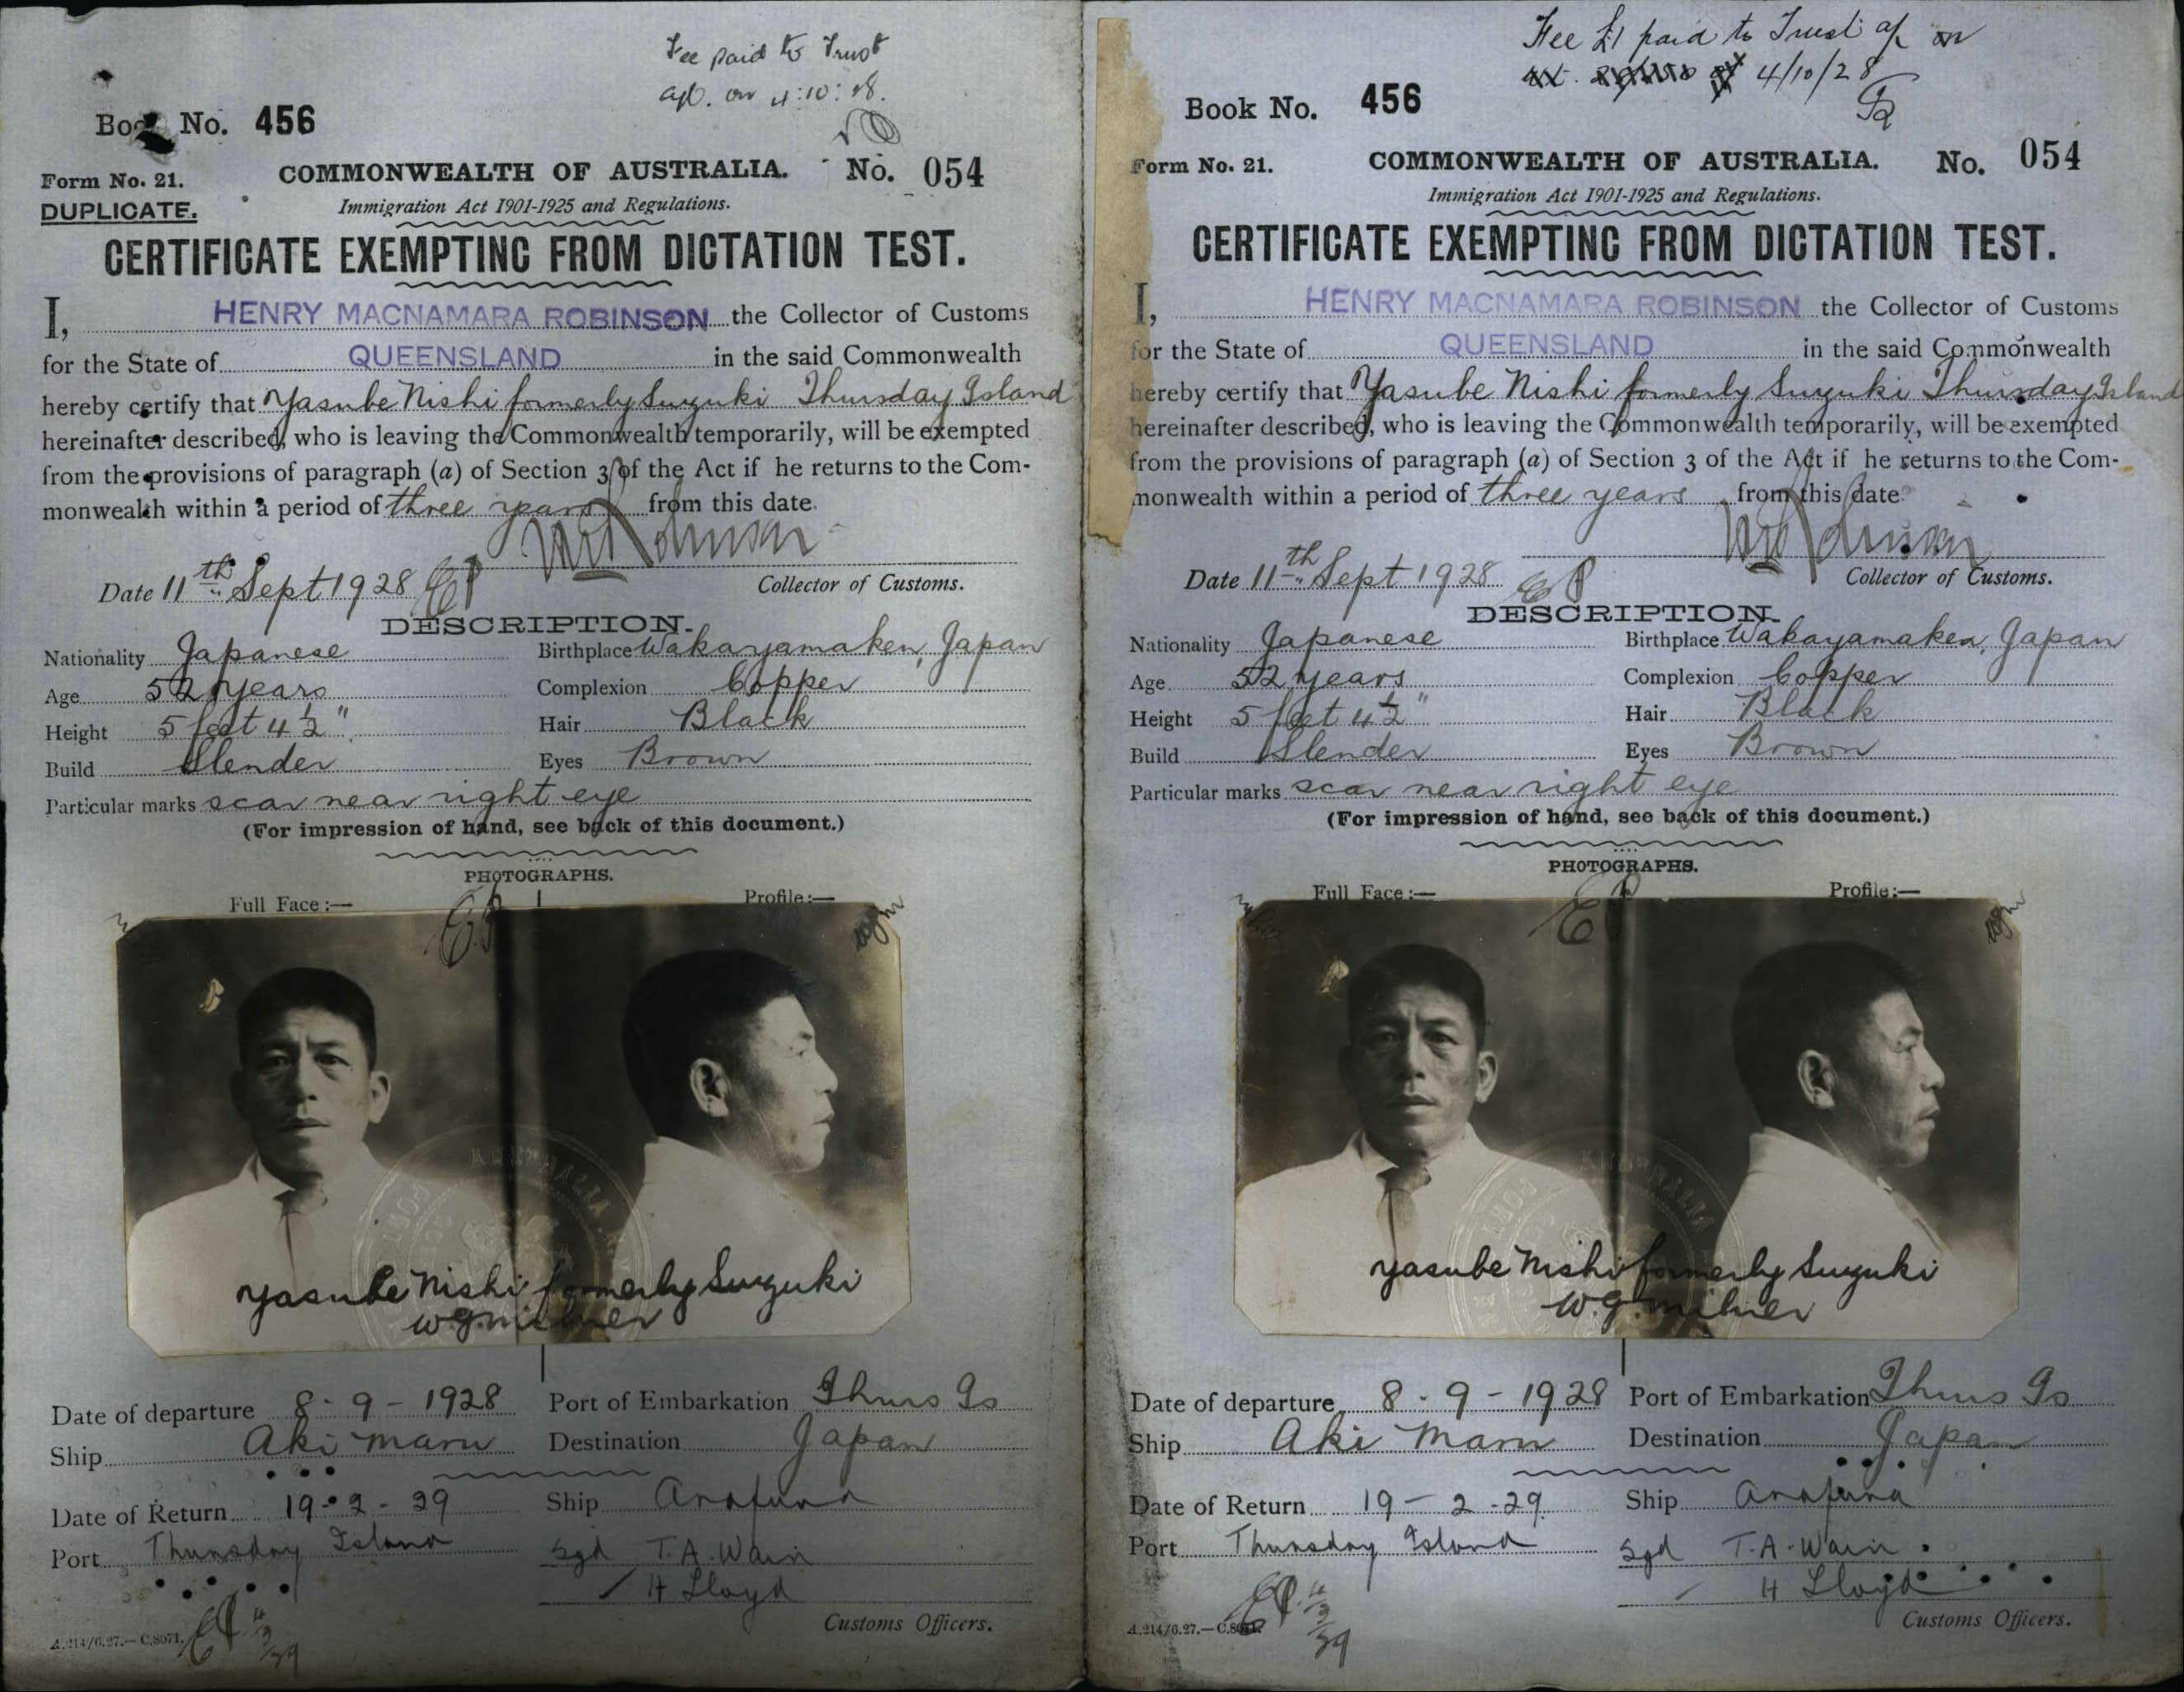 Fee paid to Trust
a/c. on 4:10:28.
Book No. 456
Form No. 21.
COMMONWEALTH OF AUSTRALIA.
No. 054
DUPLICATE.
Immigration Act 1901-1925 and Regulations.
CERTIFICATE EXEMPTING FROM DICTATION TEST.
I, HENRY MACNAMARA ROBINSON the Collector of Customs
for the State of QUEENSLAND in the said Commonwealth
hereby certify that Yasube Nishi formerly Suzuki Thursday Island
hereinafter described, who is leaving the Commonwealth temporarily, will be exempted
from the provisions of paragraph (a) of Section 3 of the Act if he returns to the Com-
monwealth within a period of three years from this date.
Date 11th Sept 1928
Collector of Customs.
DESCRIPTION.
Nationality Japanese Birthplace Wakayamaken, Japan
Age 52 years Complexion Copper
Height 5 feet 4½" Hair Black
Build Slender Eyes Brown
Particular marks scar near right eye
(For impression of hand, see back of this document.)
PHOTOGRAPHS.
Full Face:— Profile:—
Yasube Nishi formerly Suzuki
W.G. Milner
Date of departure 8-9-1928 Port of Embarkation Thurs Is
Ship Aki Maru Destination Japan
Date of Return 19-2-29 Ship Arafura
Port Thursday Island Sgd T.A. Wain
H Lloyd
Customs Officers.
A.214/6.27.—C.8071.
Fee £1 paid to Trust a/c on
4/10/28
Book No. 456
Form No. 21.
COMMONWEALTH OF AUSTRALIA.
No. 054
Immigration Act 1901-1925 and Regulations.
CERTIFICATE EXEMPTING FROM DICTATION TEST.
I, HENRY MACNAMARA ROBINSON the Collector of Customs
for the State of QUEENSLAND in the said Commonwealth
hereby certify that Yasube Nishi formerly Suzuki Thursday Island
hereinafter described, who is leaving the Commonwealth temporarily, will be exempted
from the provisions of paragraph (a) of Section 3 of the Act if he returns to the Com-
monwealth within a period of three years from this date
Date 11th Sept 1928
Collector of Customs.
DESCRIPTION.
Nationality Japanese Birthplace Wakayamaken, Japan
Age 52 years Complexion Copper
Height 5 feet 4½" Hair Black
Build Slender Eyes Brown
Particular marks scar near right eye
(For impression of hand, see back of this document.)
PHOTOGRAPHS.
Full Face:— Profile:—
Yasube Nishi formerly Suzuki
W.G. Milner
Date of departure 8-9-1928 Port of Embarkation Thurs Is
Ship Aki Maru Destination Japan
Date of Return 19-2-29 Ship Arafura
Port Thursday Island Sgd T.A. Wain
H Lloyd
Customs Officers.